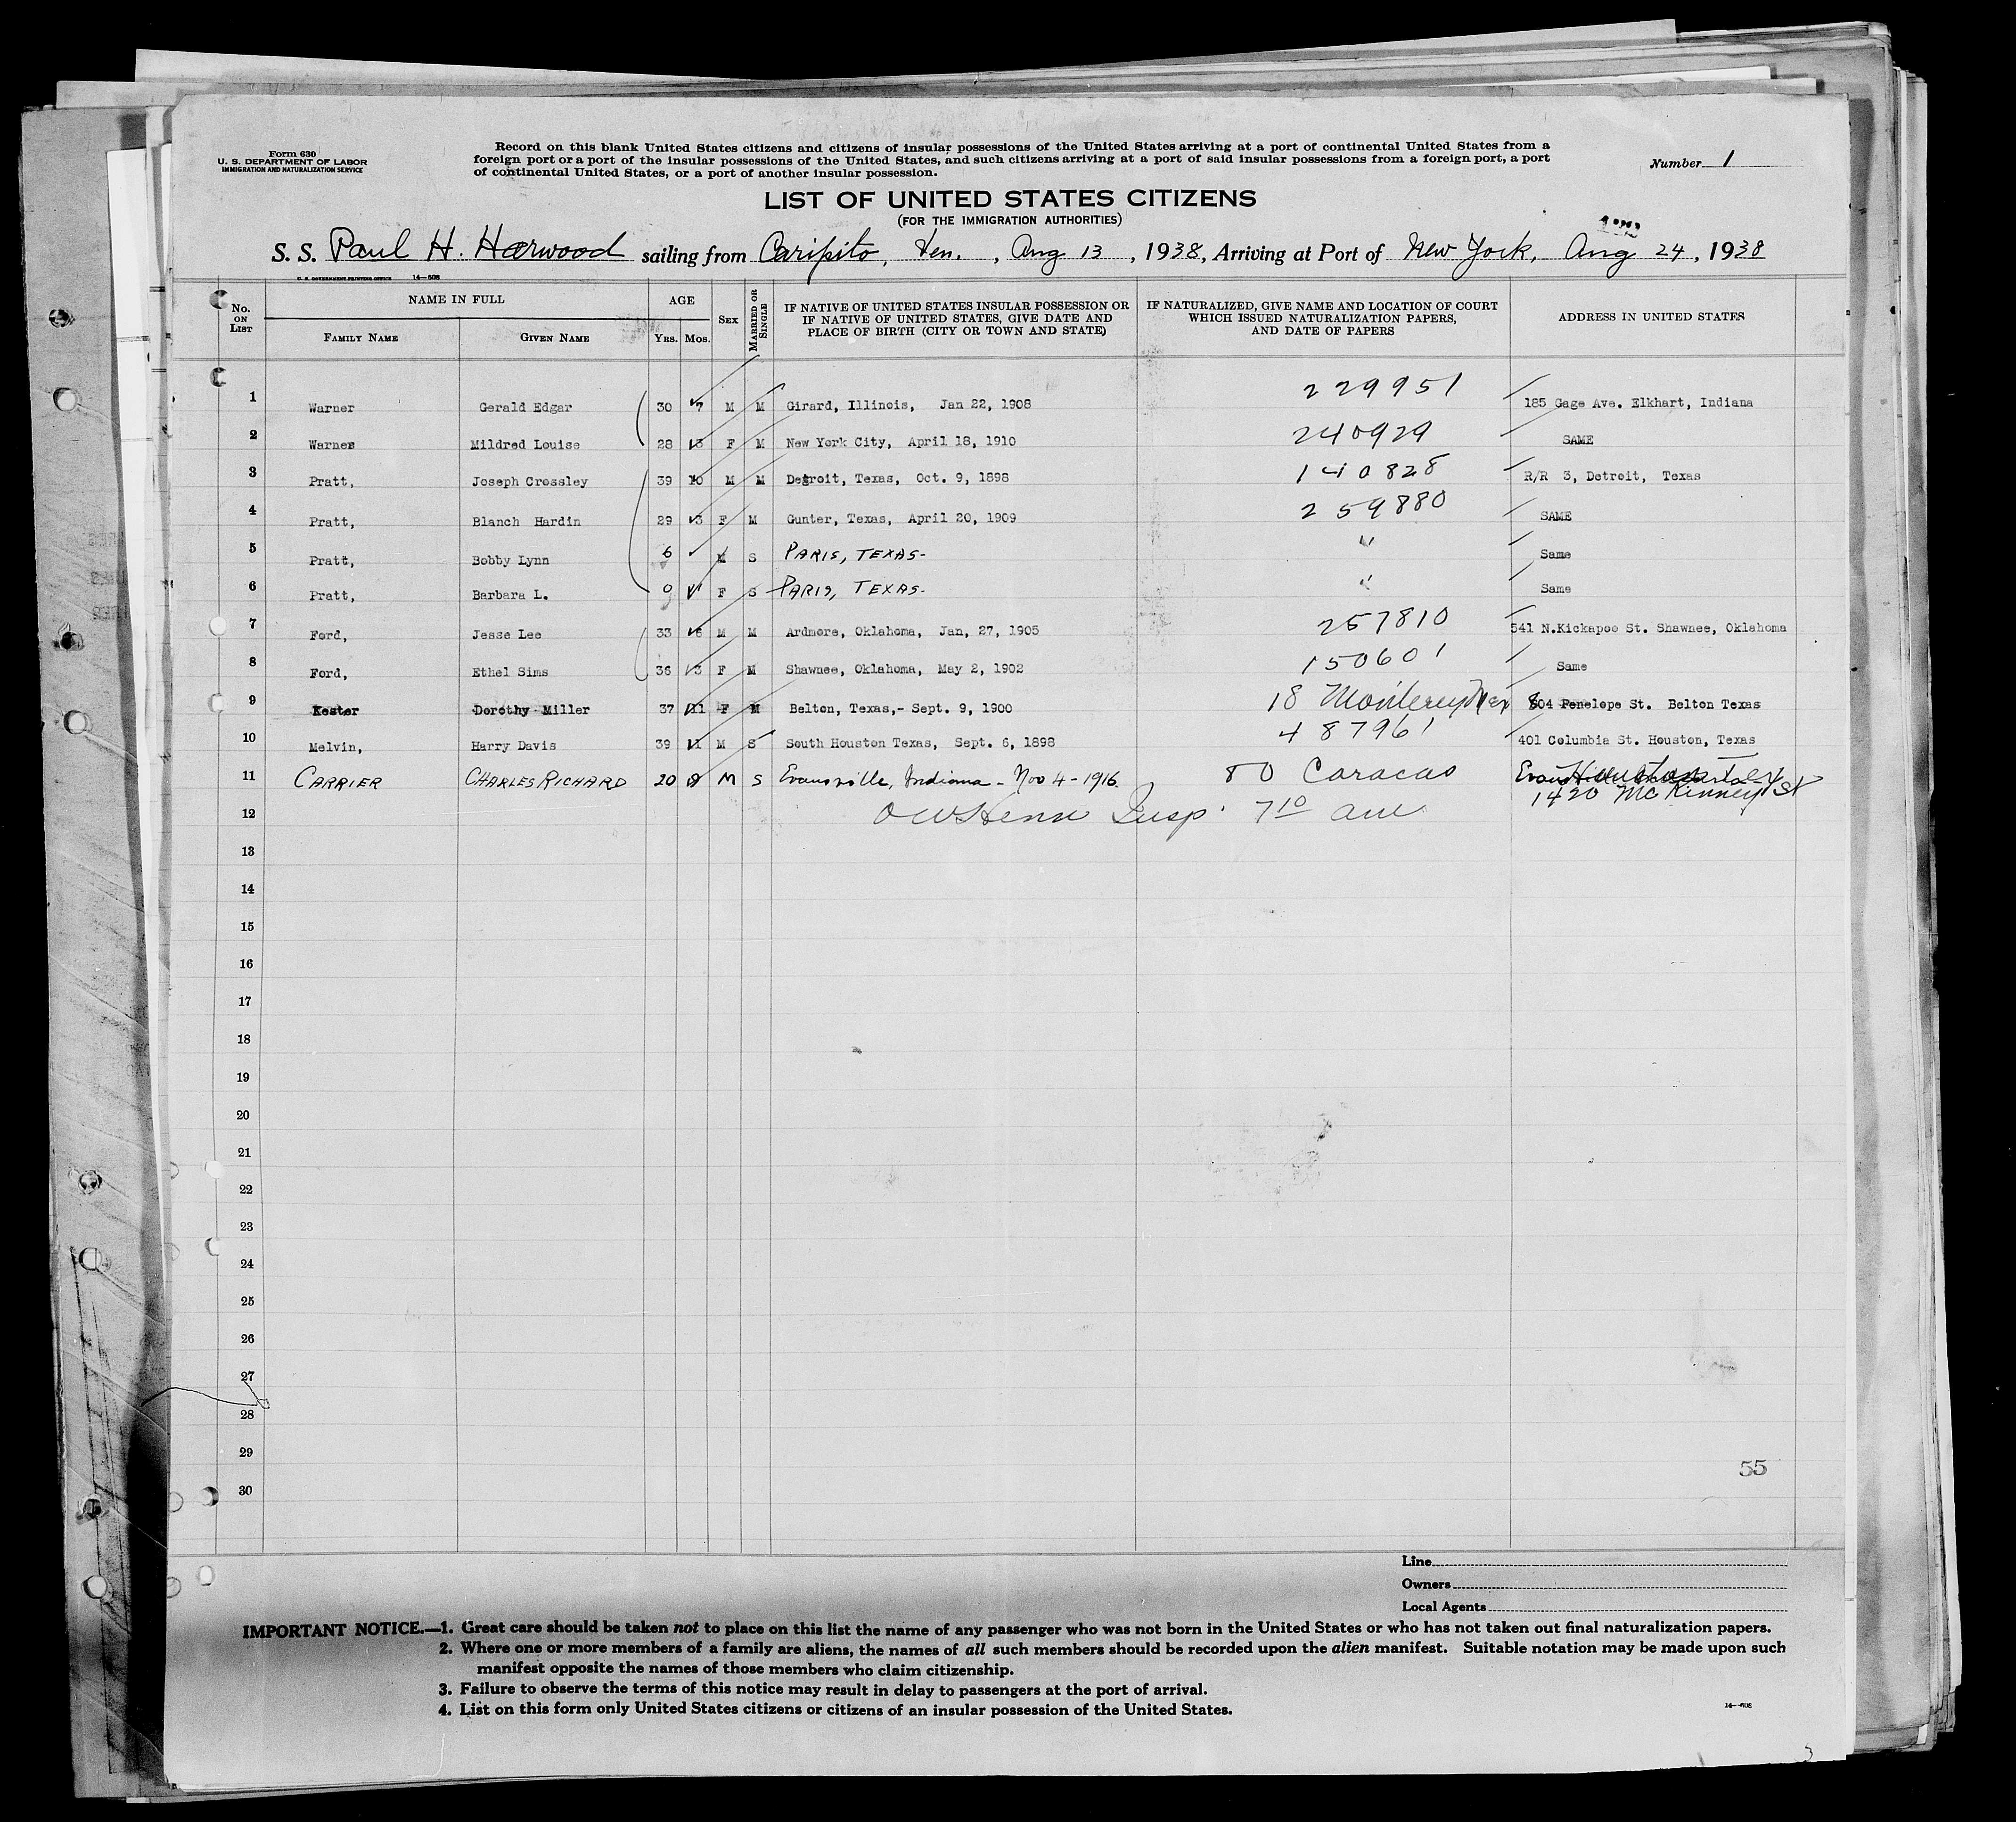 Form 630
U. S. DEPARTMENT OF LABOR
IMMIGRATION AND NATURALIZATION SERVICE
Record on this blank United States citizens and citizens of insular possessions of the United States arriving at a port of continental United States from a
foreign port or a port of the insular possessions of the United States, and such citizens arriving at a port of said insular possessions from a foreign port, a port
of continental United States, or a port of another insular possession.
Number 1
LIST OF UNITED STATES CITIZENS
(FOR THE IMMIGRATION AUTHORITIES)
S. S. Paul H. Harwood sailing from Caripito, Ven., Aug 13, 1938, Arriving at Port of New York, Aug 24, 1938
U. S. GOVERNMENT PRINTING OFFICE 14—608
No. ON LIST
NAME IN FULL
FAMILY NAME
GIVEN NAME
AGE
YRS. MOS.
SEX
MARRIED OR SINGLE
IF NATIVE OF UNITED STATES INSULAR POSSESSION OR
IF NATIVE OF UNITED STATES, GIVE DATE AND
PLACE OF BIRTH (CITY OR TOWN AND STATE)
IF NATURALIZED, GIVE NAME AND LOCATION OF COURT
WHICH ISSUED NATURALIZATION PAPERS,
AND DATE OF PAPERS
ADDRESS IN UNITED STATES
1 Warner Gerald Edgar 30 7 M M Girard, Illinois, Jan 22, 1908 229951 185 Gage Ave. Elkhart, Indiana
2 Warner Mildred Louise 28 3 F M New York City, April 18, 1910 240929 SAME
3 Pratt, Joseph Crossley 39 10 M M Detroit, Texas, Oct. 9, 1898 140828 R/R 3, Detroit, Texas
4 Pratt, Blanch Hardin 29 3 F M Gunter, Texas, April 20, 1909 259880 SAME
5 Pratt, Bobby Lynn 6 M S PARIS, TEXAS- " Same
6 Pratt, Barbara L. F S PARIS, TEXAS- " Same
7 Ford, Jesse Lee 33 6 M M Ardmore, Oklahoma, Jan, 27, 1905 257810 541 N.Kickapoo St. Shawnee, Oklahoma
8 Ford, Ethel Sims 36 3 F M Shawnee, Oklahoma, May 2, 1902 150601 Same
9 Kester Dorothy Miller 37 11 F M Belton, Texas,- Sept. 9, 1900 18 Monterey Mex 804 Penelope St. Belton Texas
10 Melvin, Harry Davis 39 11 M S South Houston Texas, Sept. 6, 1898 487961 401 Columbia St. Houston, Texas
11 CARRIER CHARLES RICHARD 20 9 M S Evansville, Indiana - Nov 4 - 1916. 80 Caracas Houston
1420 McKinney St
12 Insp. 7 10
13
14
15
16
17
18
19
20
21
22
23
24
25
26
27
28
29
30
55
Line
Owners
Local Agents
IMPORTANT NOTICE.—1. Great care should be taken not to place on this list the name of any passenger who was not born in the United States or who has not taken out final naturalization papers.
2. Where one or more members of a family are aliens, the names of all such members should be recorded upon the alien manifest. Suitable notation may be made upon such
manifest opposite the names of those members who claim citizenship.
3. Failure to observe the terms of this notice may result in delay to passengers at the port of arrival.
4. List on this form only United States citizens or citizens of an insular possession of the United States.
14—608
3